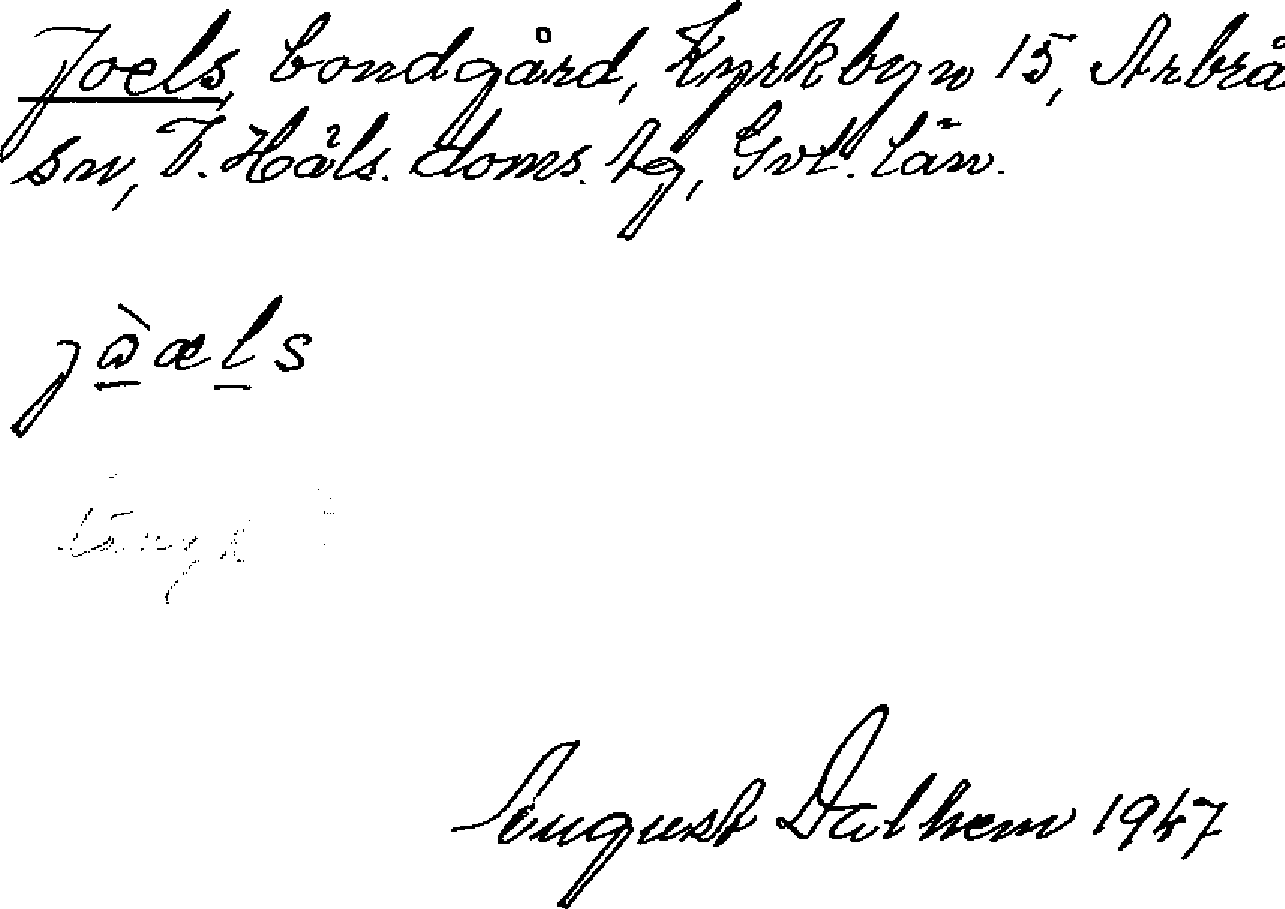 Joels, bondgård, Kyrkbyn 15, Arbrå
sn, V. Häls. doms. tg, Gvl. län.
jὰæls
August Dalhem 1947